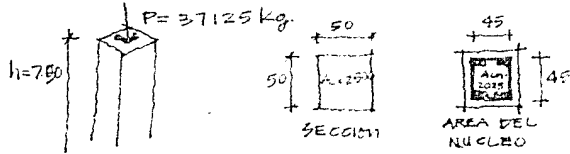 P= 37125 Kg.
h=750
50
50
SECCION
45
Aun
2025
45
AREA DEL
NUCLEO